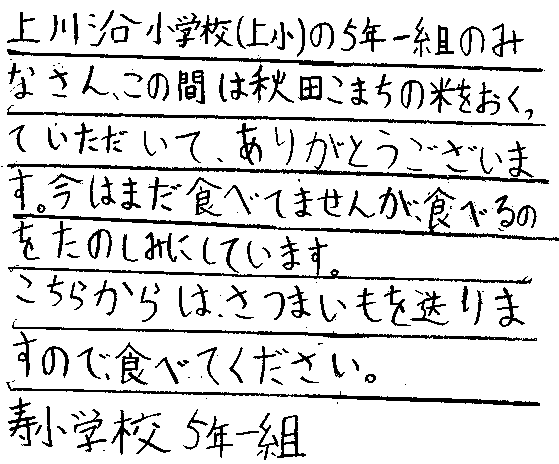 上川沿小学校(上小)の5年一組のみ
なさん、この間は秋田こまちの米をおくっ
ていただいて、ありがとうございま
す。今はまだ食べてませんが、食べるの
をたのしみにしています。
こちらからは、さつまいもを送りま
すので、食べてください。
寿小学校 5年一組